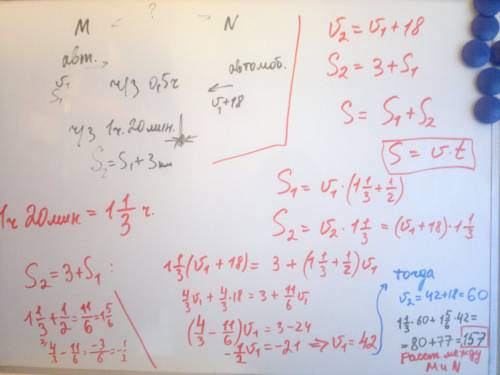 M < ? > N
авт. →
v₁
S₁
ч/з 0,5ч
автомоб.
←
v₁+18
ч/з 1ч. 20мин.
S₂ = S₁ + 3 км
v₂ = v₁ + 18
S₂ = 3 + S₁
S = S₁ + S₂
S = v · t
S₁ = v₁ · (1 1/3 + 1/2)
S₂ = v₂ · 1 1/3 = (v₁+18) · 1 1/3
1ч 20мин = 1 1/3 ч.
S₂ = 3 + S₁ :
1 1/3 + 1/2 = 11/6 = 1 5/6
4/3 - 11/6 = -3/6 = -1/2
1 1/3 (v₁ + 18) = 3 + (1 1/3 + 1/2) v₁
4/3 v₁ + 4/3 · 18 = 3 + 11/6 v₁
(4/3 - 11/6) v₁ = 3 - 24
-1/2 v₁ = -21 ⇒ v₁ = 42
тогда
v₂ = 42 + 18 = 60
1 1/3 · 60 + 1 5/6 · 42 =
= 80 + 77 = 157
Расст. между
M и N